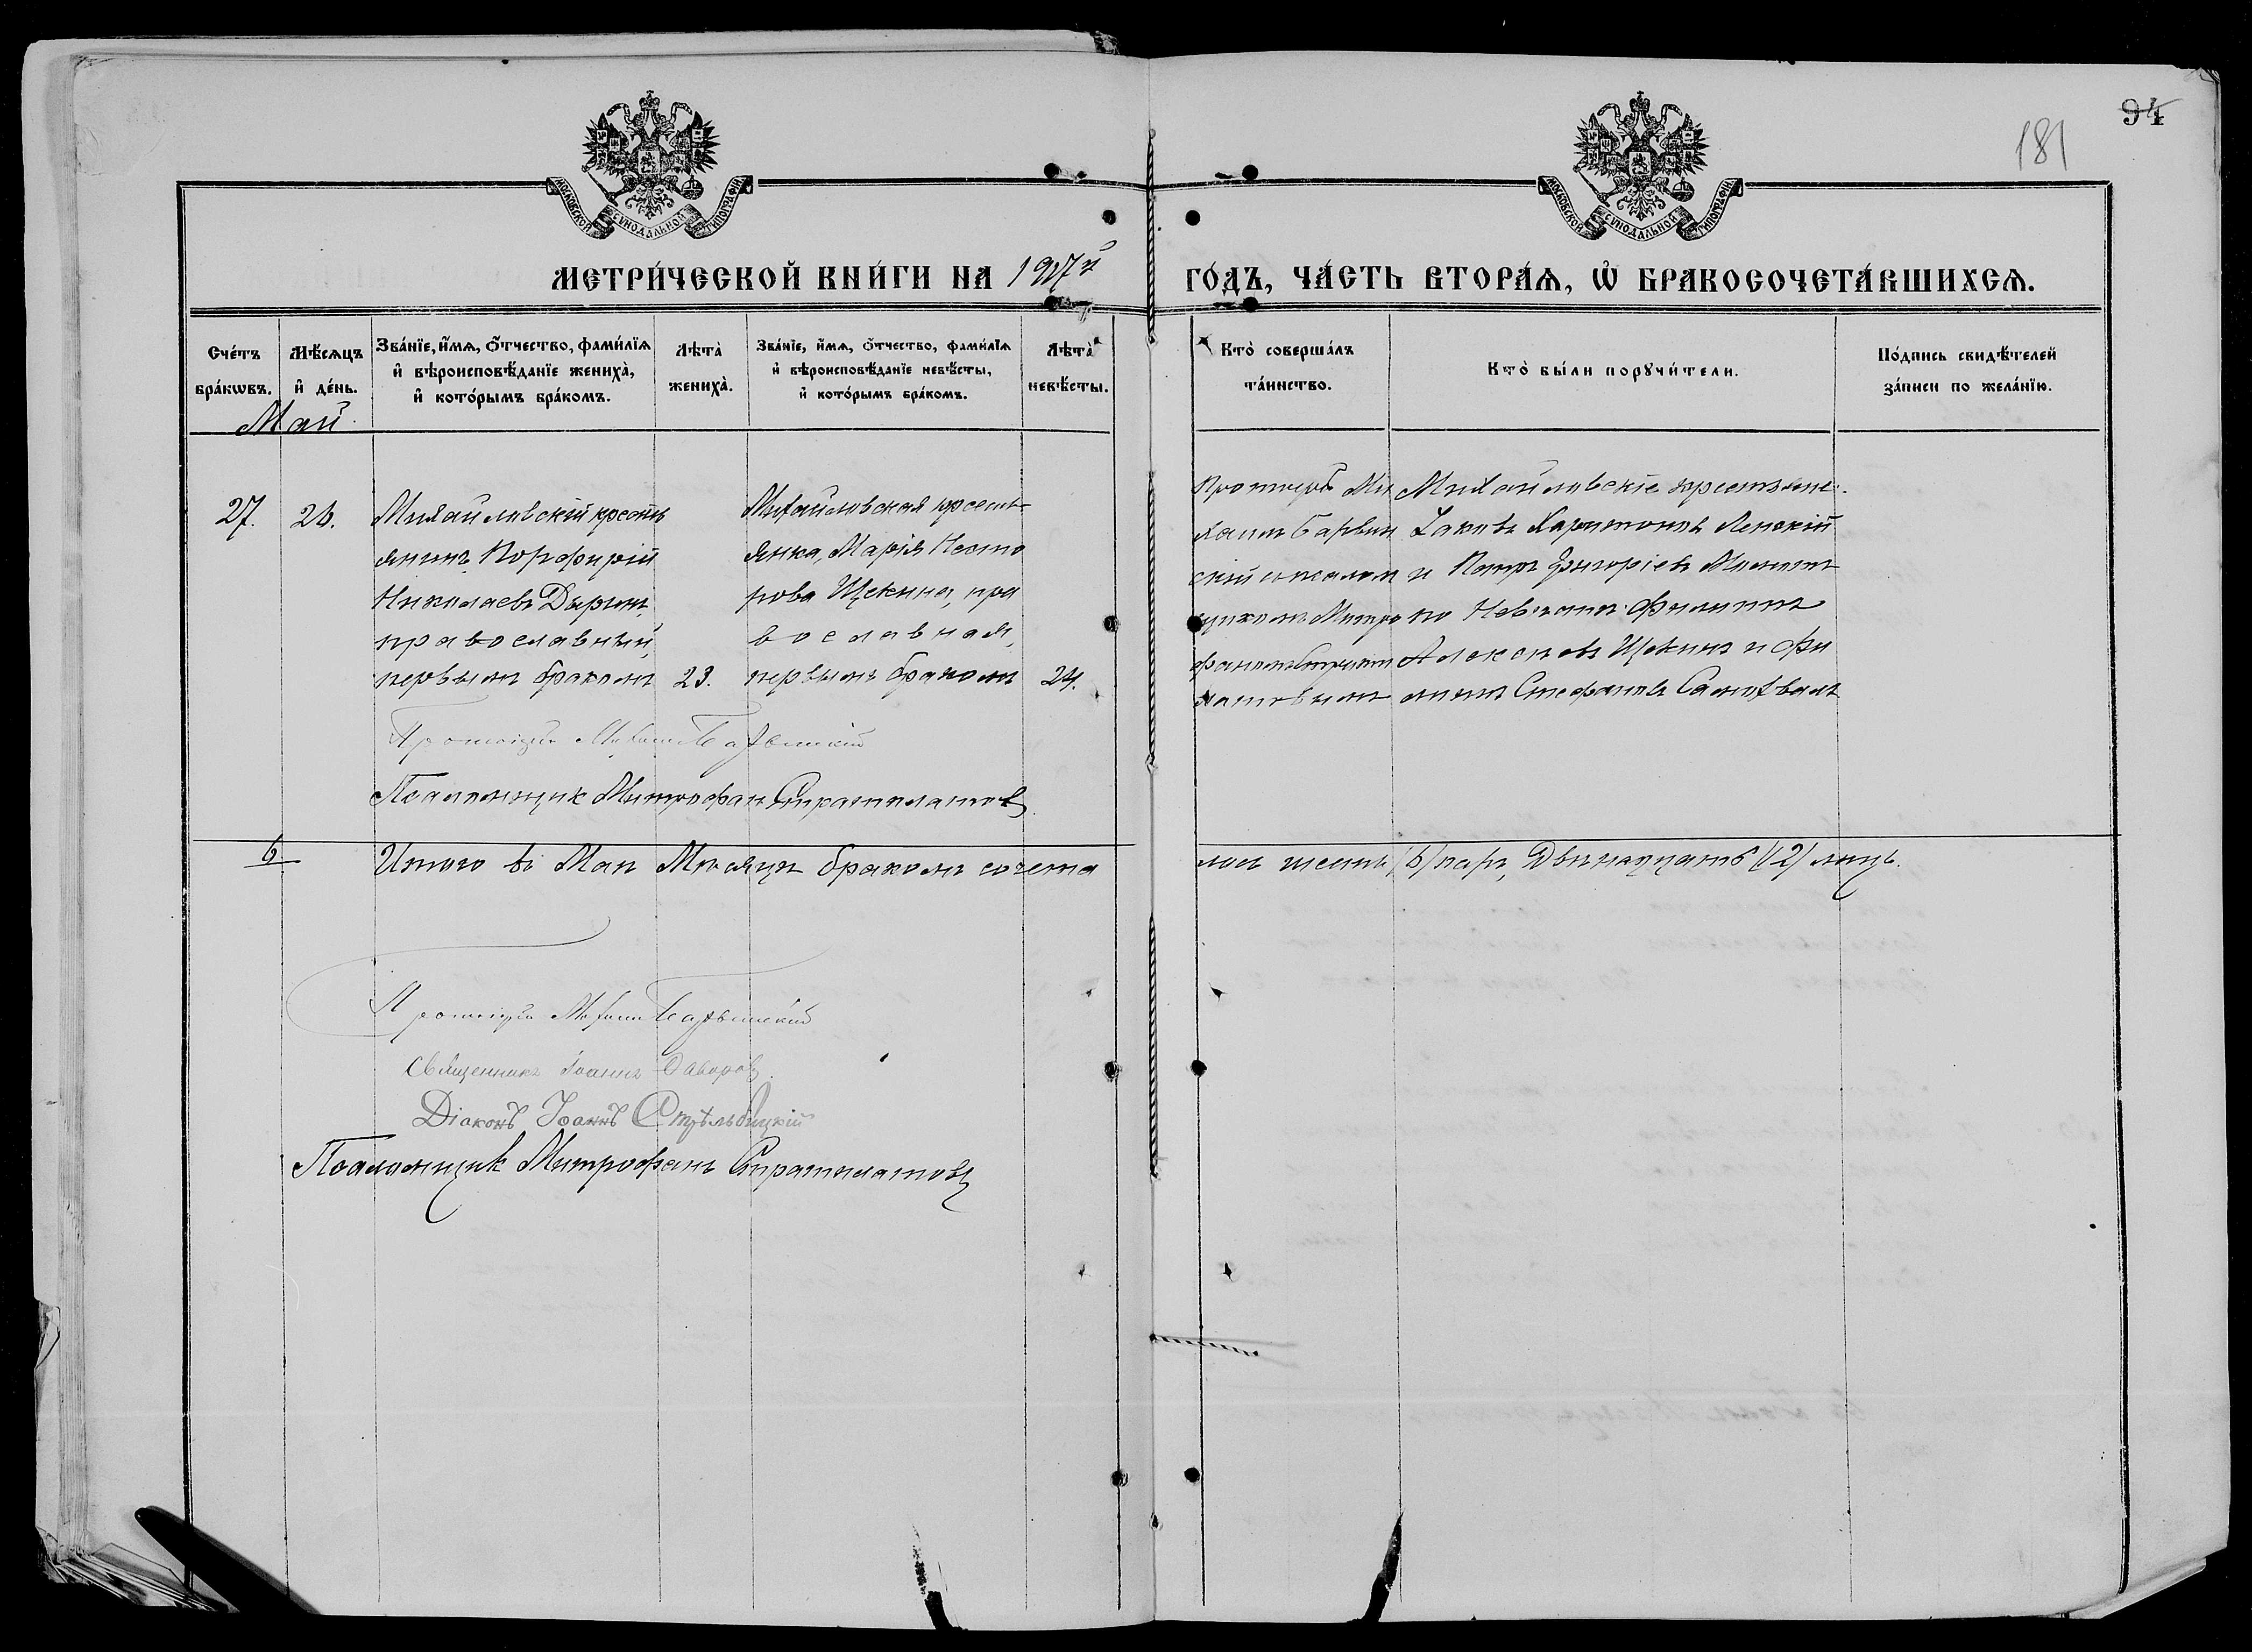 94
181
МОСКОВСКОЙ СѴНОДАЛЬНОЙ ТИПОГРАФІИ
МОСКОВСКОЙ СѴНОДАЛЬНОЙ ТИПОГРАФІИ
МЕТРИ́ЧЕСКОЙ КНИ́ГИ НА 1907й ГО́ДЪ, ЧА́СТЬ ВТОРА́Ѧ, Ѽ БРАКОСОЧЕТА́ВШИХСѦ.
Сче́тъ бра́кѡвъ.
Мѣ́сѧцъ и҆ де́нь.
Зва́нїе, и҆́мѧ, ѻ҆́тчество, фами́лїѧ
и҆ вѣроисповѣ́данїе жениха̀,
и҆ кото́рымъ бра́комъ.
Лѣта̀ жениха̀.
Зва́нїе, и҆́мѧ, ѻ҆́тчество, фами́лїѧ
и҆ вѣроисповѣ́данїе невѣ́сты,
и҆ кото́рымъ бра́комъ.
Лѣта̀ невѣ́сты.
Кто̀ соверша́лъ та́инство.
Кто̀ бы́ли порꙋчи́тели.
По́дпись свидѣ́телей за́писи по жела́нїю.
Май.
27.
28.
Михайловскій кресть
янинъ Порфирій
Николаевъ Дыринъ,
православный,
первымъ бракомъ
23.
Михайловская кресть
янка, Марія Несто
рова Щекина, пра
вославная,
первымъ бракомъ
24.
Протоіерей Ми
хаилъ Барвин
скій съ псалом
щикомъ Митро
фаномъ Страти
латовымъ
Михайловскіе крестьяне:
Іаковъ Харитоновъ Ленскій
и Петръ Григоріевъ
по Невѣстѣ: Филиппъ
Алексѣевъ Щекинъ и Фи
липпъ Стефановъ
Протоіерей Михаилъ Барвинскій
Псаломщик Митрофан Стратилатовъ
6
Итого въ Маѣ Мѣсяцѣ бракомъ сочета
лось шесть /6/ паръ, Двѣнадцать /12/ лицъ.
Протоіерей Михаилъ Барвинскій
Священникъ Іоаннъ
Діаконъ Іоаннъ Стрѣльбицкій
Псаломщик Митрофанъ Стратилатовъ